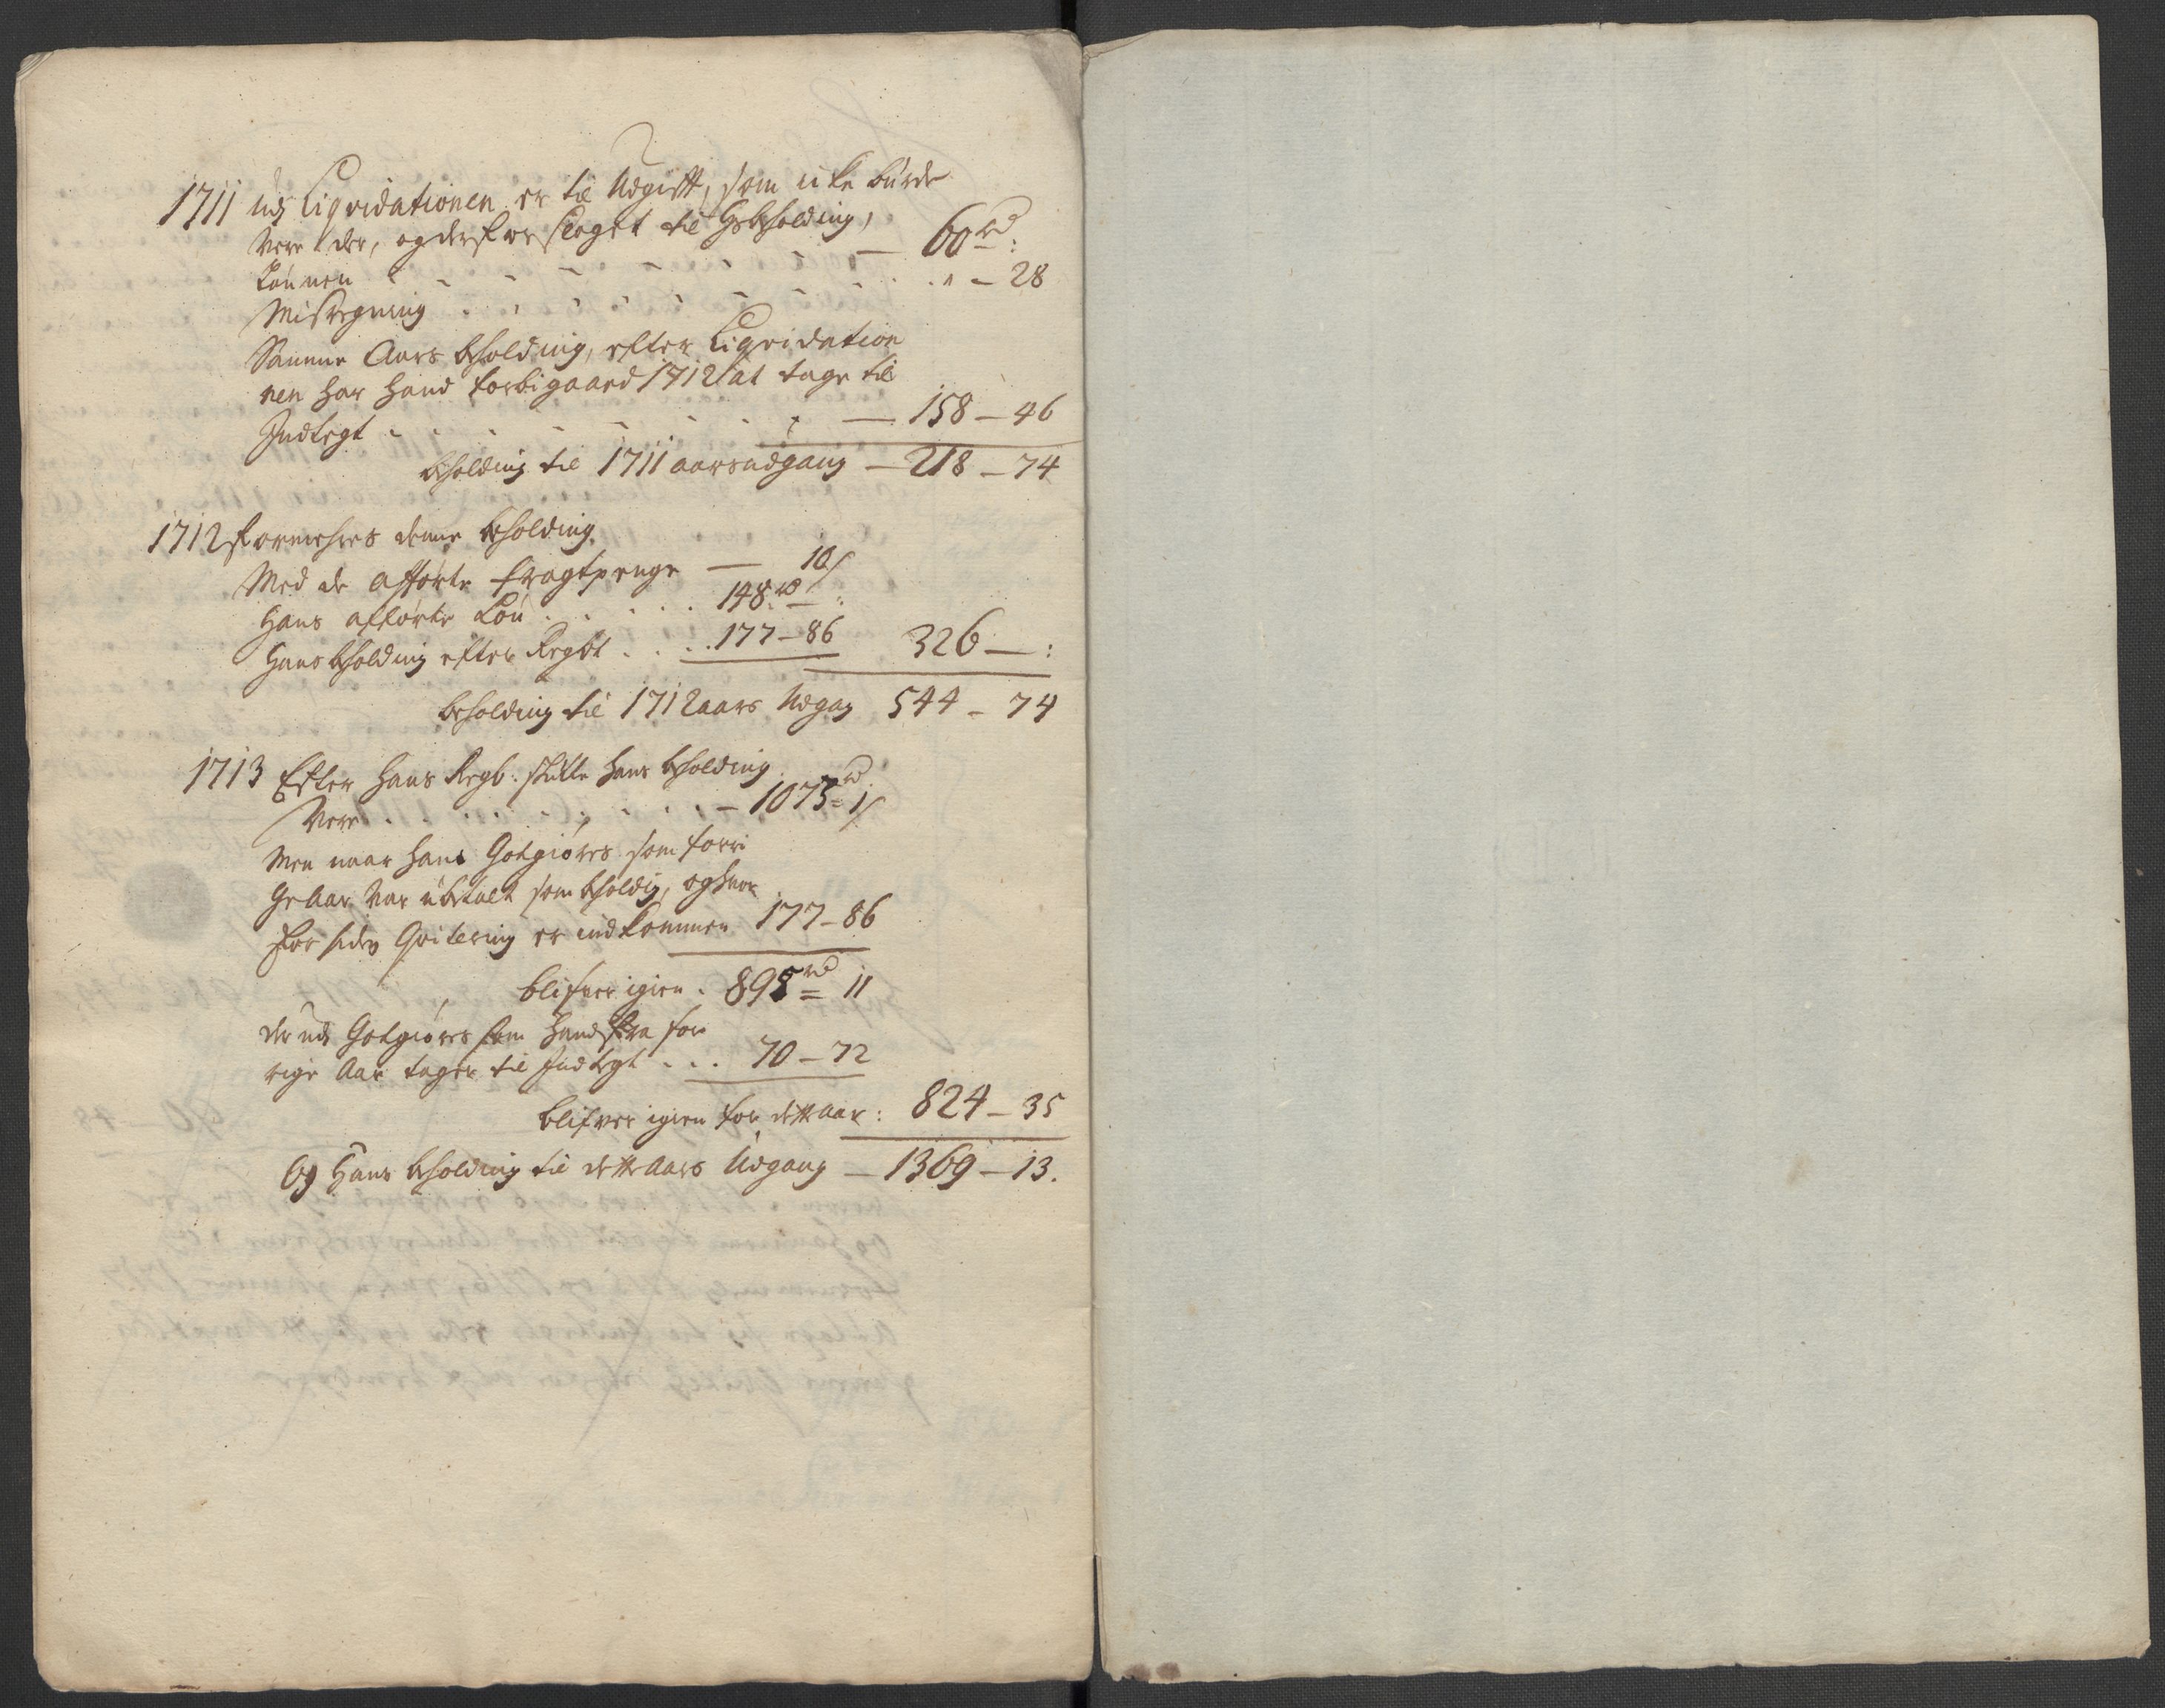 1711 udj Liqvidationen er til Udgift, som icke burde
Vere der, og derfor slaget til Gsbholding,
Lønnen . . . . . . . . — 60 rd :
Misregning . . . . . . . . " — 28
Samme Aars bholding, efter Liqvidation
nen har hand forbigaaed 1712 at tage til
Indtegt . . . . . . . — 158 — 46
bholding til 1711 aars udgang — 218 — 74
1712 formehres denne bholding
Med de afførte fragtpenge — 10 s
Hans afførte Løn . . . . . 148 rd :
Hans bholding efter Regbt . . . . 177 — 86 326 — :
beholding til 1712 aars Udgang 544 — 74
1713 Efter hans Regb: skulle hans bholding
Vere . . . . . . . . — 1073 rd 1 s
Men naar hans Gotgiøres som forri
Ge Aar var ubetalt som bholding, og hvor
for siden Qvitering er indkommen 177 — 86
blifver igien . 895 rd 11
der udj Gotgiøres som hand fra for
rige Aar tager til Indtegt . . . 70 — 72
blifver igien for dette aar : 824 — 35
Og Hans bholding til dette Aars Udgang — 1369 — 13.